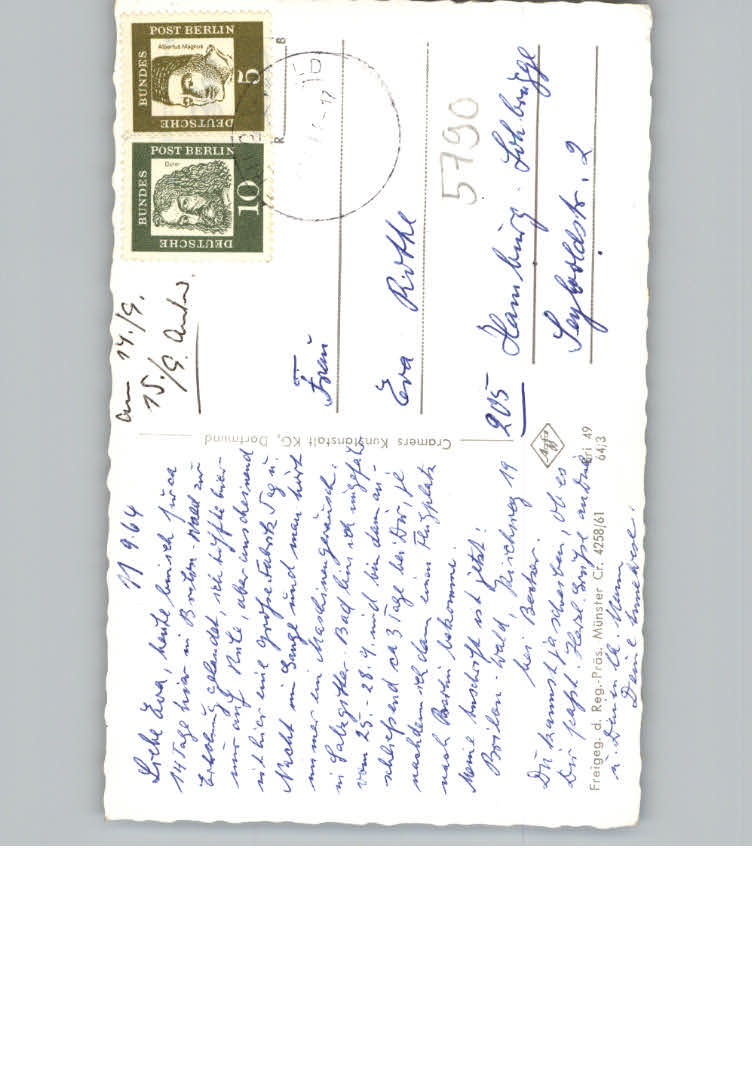 11 9.64
Liebe Eva, heute bin ich für ca
14 Tage hier in Brilon-Wald zur
Erholung gelandet, ich hoffte hier
nur auf Ruhe, aber anscheinend
ist hier eine große Fabrik Tag u.
Nacht im Gange und man hört
immer ein Maschinengeräusch.
in Salzgitter-Bad bin ich ungefähr
vom 25.-28.9. und bin dann an-
schließend ca 3 Tage bei Dir, je
nachdem ich dann einen Flugplatz
nach Berlin bekomme.
Meine Anschrift ist jetzt:
Brilon-Wald, Kirchweg 19
bei Becker.
Du kannst ja schreiben, ob es
Dir paßt. Herzl. Grüße an Dich
u. Deinen lb. Mann
Deine
Freigeg. d. Reg.-Präs. Münster Cr. 4258/61
Cramers Kunstanstalt KG, Dortmund
Agfa
49
64/3
am 14./9.
15./9. Antw.
DEUTSCHE BUNDES POST BERLIN
Dürer
10
DEUTSCHE BUNDES POST BERLIN
Albertus Magnus
5
Frau
Eva Rothe
5790
205 Hamburg-Lohbrügge
Leyboldstr. 2